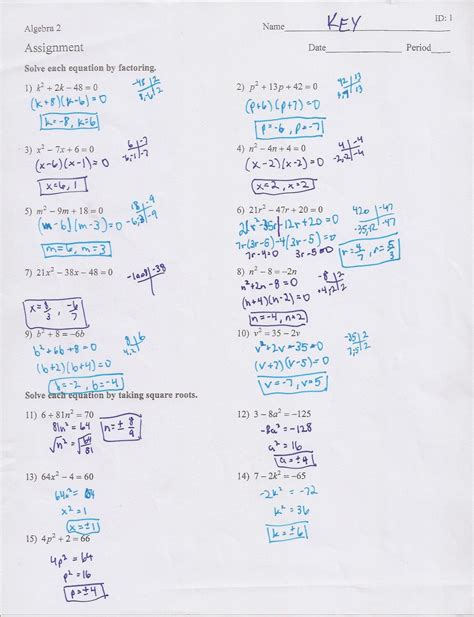 ID: 1
Algebra 2
Name KEY
Assignment
Date Period
Solve each equation by factoring.
1) k² + 2k - 48 = 0
-48 | 2
8, -6 | 2
(k+8)(k-6)=0
k=-8, k=6
2) p² + 13p + 42 = 0
42 | 13
13
(p+6)(p+7)=0
p=-6, p=-7
3) x² - 7x + 6 = 0
6 | -7
-6,-1 | -7
(x-6)(x-1)=0
x=6, 1
4) n² - 4n + 4 = 0
4 | -4
-2,-2 | -4
(x-2)(x-2)=0
x=2, x=2
5) m² - 9m + 18 = 0
18 | -9
-6,-3 | -9
(m-6)(m-3)=0
m=6, m=3
6) 21r² - 47r + 20 = 0
420 | -47
-35,-12 | -47
21r²-35r-12r+20=0
7r(3r-5)-4(3r-5)=0
7r-4=0 3r-5=0
r=4/7, r=5/3
7) 21x² - 38x - 48 = 0
-1008 | -38
x=8/3, -6/7
8) n² - 8 = -2n
-8 | 2
+4,-2 | 2
n²+2n-8=0
(n+4)(n-2)=0
n=-4, n=2
9) b² + 8 = -6b
8 | 6
4,2 |
b²+6b+8=0
(b+2)(b+4)=0
b=-2, b=-4
10) v² = 35 - 2v
-35 | 2
7,-5 | 2
v²+2v-35=0
(v+7)(v-5)=0
v=-7, v=5
Solve each equation by taking square roots.
11) 6 + 81n² = 70
81n²=64
√n²=√64/81
n=±8/9
12) 3 - 8a² = -125
-8a²=-128
a²=16
a=±4
13) 64x² - 4 = 60
64x²=64
x²=1
x=±1
14) 7 - 2k² = -65
-2k²=-72
k²=36
k=±6
15) 4p² + 2 = 66
4p²=64
p²=16
p=±4